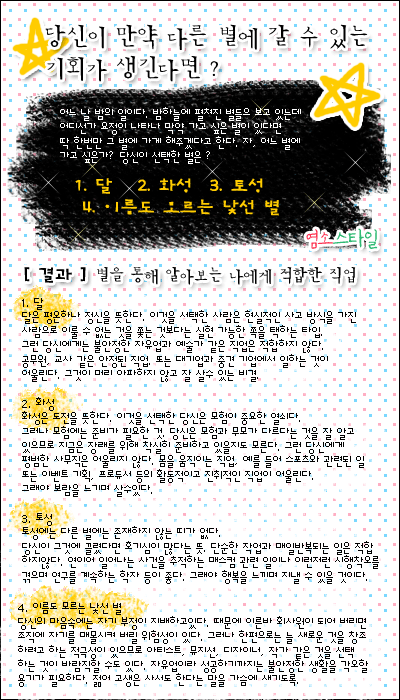 당신이 만약 다른 별에 갈 수 있는
기회가 생긴다면 ?
어느 날 밤의 일이다. 밤하늘에 펼쳐진 별들을 보고 있는데
어디선가 요정이 나타나 만약 가고 싶은 별이 있다면
딱 한번만 그 별에 가게 해주겠다고 한다. 자, 어느 별에
가고 싶은가? 당신이 선택한 별은 ?
1. 달 2. 화성 3. 토성
4. 이름도 모르는 낯선 별
염소스타일
[ 결과 ] 별을 통해 알아보는 나에게 적합한 직업
1. 달
달은 평온이나 정신을 뜻한다. 이것을 선택한 사람은 현실적인 사고 방식을 가진
사람으로 이룰 수 없는 것을 쫓는 것보다는 실현 가능한 쪽을 택하는 타입.
그런 당신에게는 불안정한 자유업과 예술가 같은 직업은 적합하지 않다.
공무원, 교사 같은 안정된 직업, 또는 대기업과 중견 기업에서 일하는 것이
어울린다. 그것이 머리 아파하지 않고 잘 살수 있는 비결.
2. 화성
화성은 도전을 뜻한다. 이것을 선택한 당신은 모험이 중요한 열쇠다.
그러나 모험에는 준비가 필요한 것. 당신은 모험과 무모가 다르다는 것을 잘 알고
있으므로 지금은 장래를 위해 착실히 준비하고 있을지도 모른다. 그런 당신에게
평범한 사무직은 어울리지 않다. 몸을 움직이는 직업, 예를 들어 스포츠와 관련된 일
또는 이벤트 기획, 프로듀서 등의 활동적이고 진취적인 직업이 어울린다.
그래야 보람을 느끼며 살수있다.
3. 토성
토성에는 다른 별에는 존재하지 않는 띠가 없다.
당신이 그것에 끌렸다면 호기심이 많다는 뜻. 단순한 작업과 매일반복되는 일은 적합
하지않다. 연이어 일어나는 사건을 추적하는 매스컴 관련 일이나 이런저런 시행착오를
겪으며 연구를 계속하는 학자 등이 좋다. 그래야 행복을 느끼며 지낼 수 있을 것이다.
4. 이름도 모르는 낯선 별
당신의 마음속에는 자기 부정이 지배하고있다. 때문에 이른바 회사원이 되어 버리면
조직에 자기를 매몰시켜 버릴 위험성이 있다. 그러나 한편으로는 늘 새로운 것을 창조
하려고 하는 적극성이 있으므로 아티스트, 뮤지션, 디자이너, 작가 같은 것을 선택
하는 것이 바람직할 수도 있다. 자유업이라 성공하기까지는 불안정한 생활을 각오할
용기가 필요하다. 젊어 고생은 사서도 한다는 말을 가슴에 새기도록.